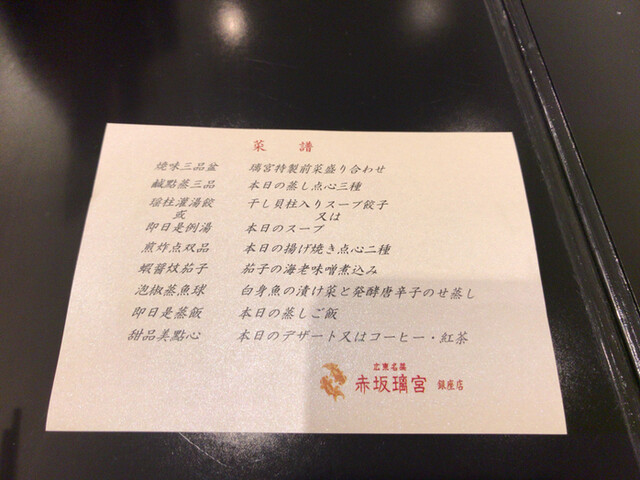 菜 譜
焼味三品盆 璃宮特製前菜盛り合わせ
鹹點蒸三品 本日の蒸し点心三種
瑶柱灌湯餃 干し貝柱入りスープ餃子
或 又は
即日是例湯 本日のスープ
煎炸点双品 本日の揚げ焼き点心二種
蝦醤炆茄子 茄子の海老味噌煮込み
泡椒蒸魚球 白身魚の漬け菜と発酵唐辛子のせ蒸し
即日是蒸飯 本日の蒸しご飯
甜品美點心 本日のデザート又はコーヒー・紅茶
広東名菜
赤坂璃宮 銀座店